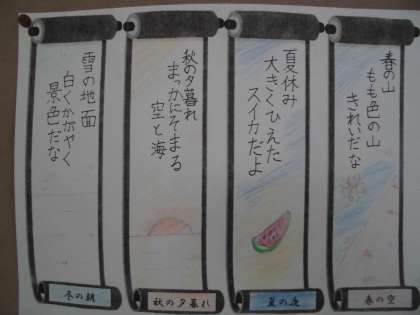 春の山
もも色の山
きれいだな
春の空
夏休み
大きくひえた
スイカだよ
夏の夜
秋の夕暮れ
まっかにそまる
空と海
秋の夕暮れ
雪の地面
白くかがやく
景色だな
冬の朝